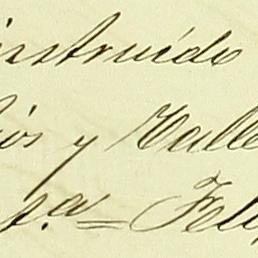 instruído
iós y Valle
f.ª = Feli